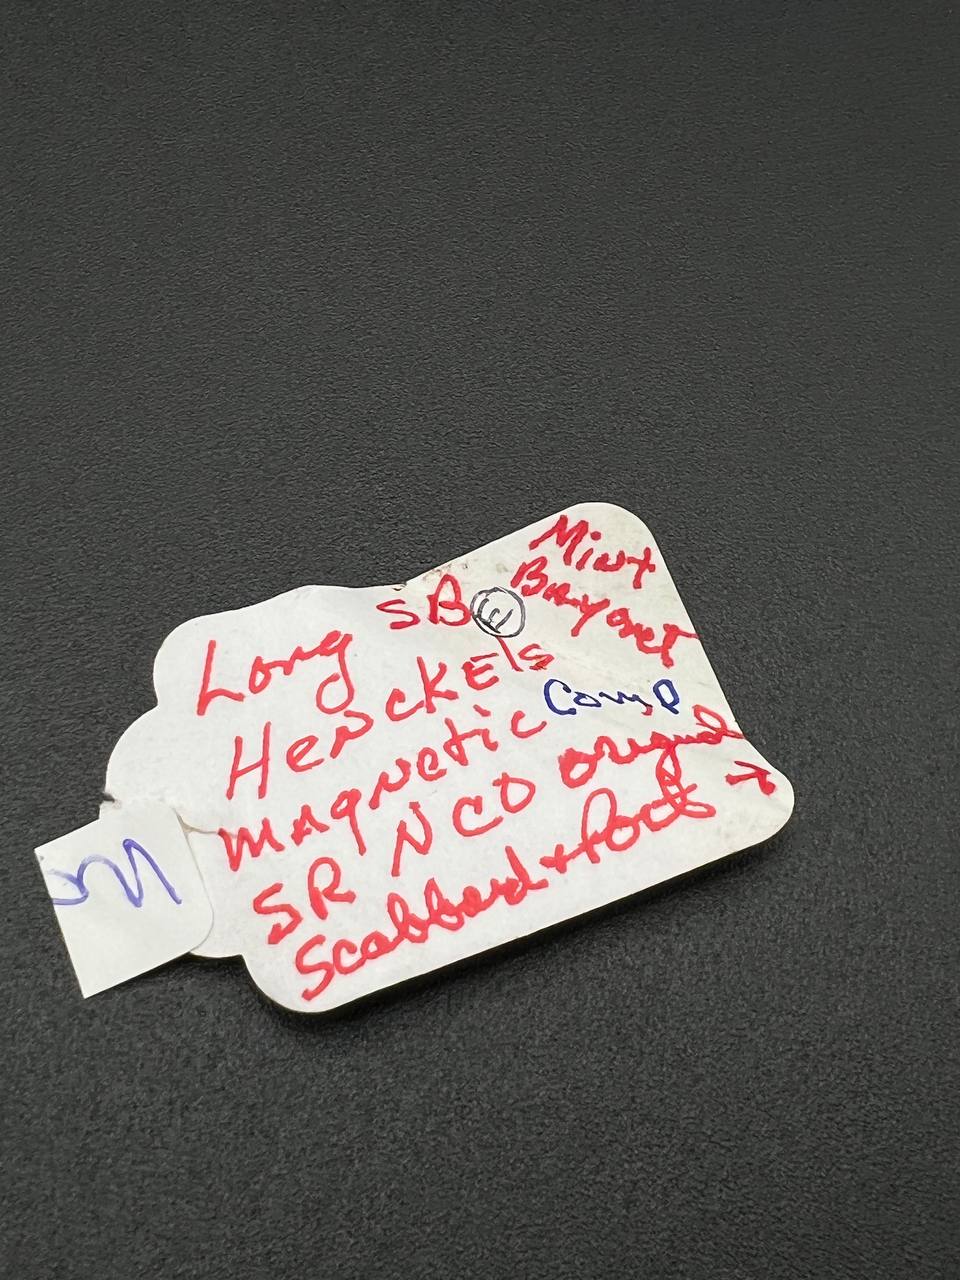 Mint
Bayonet
Long SB E
HENCKEls
Comp
magnetic
SR NCO original
Scabbard +
m